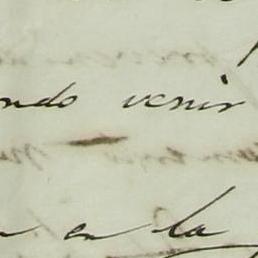 ndo venir
en la